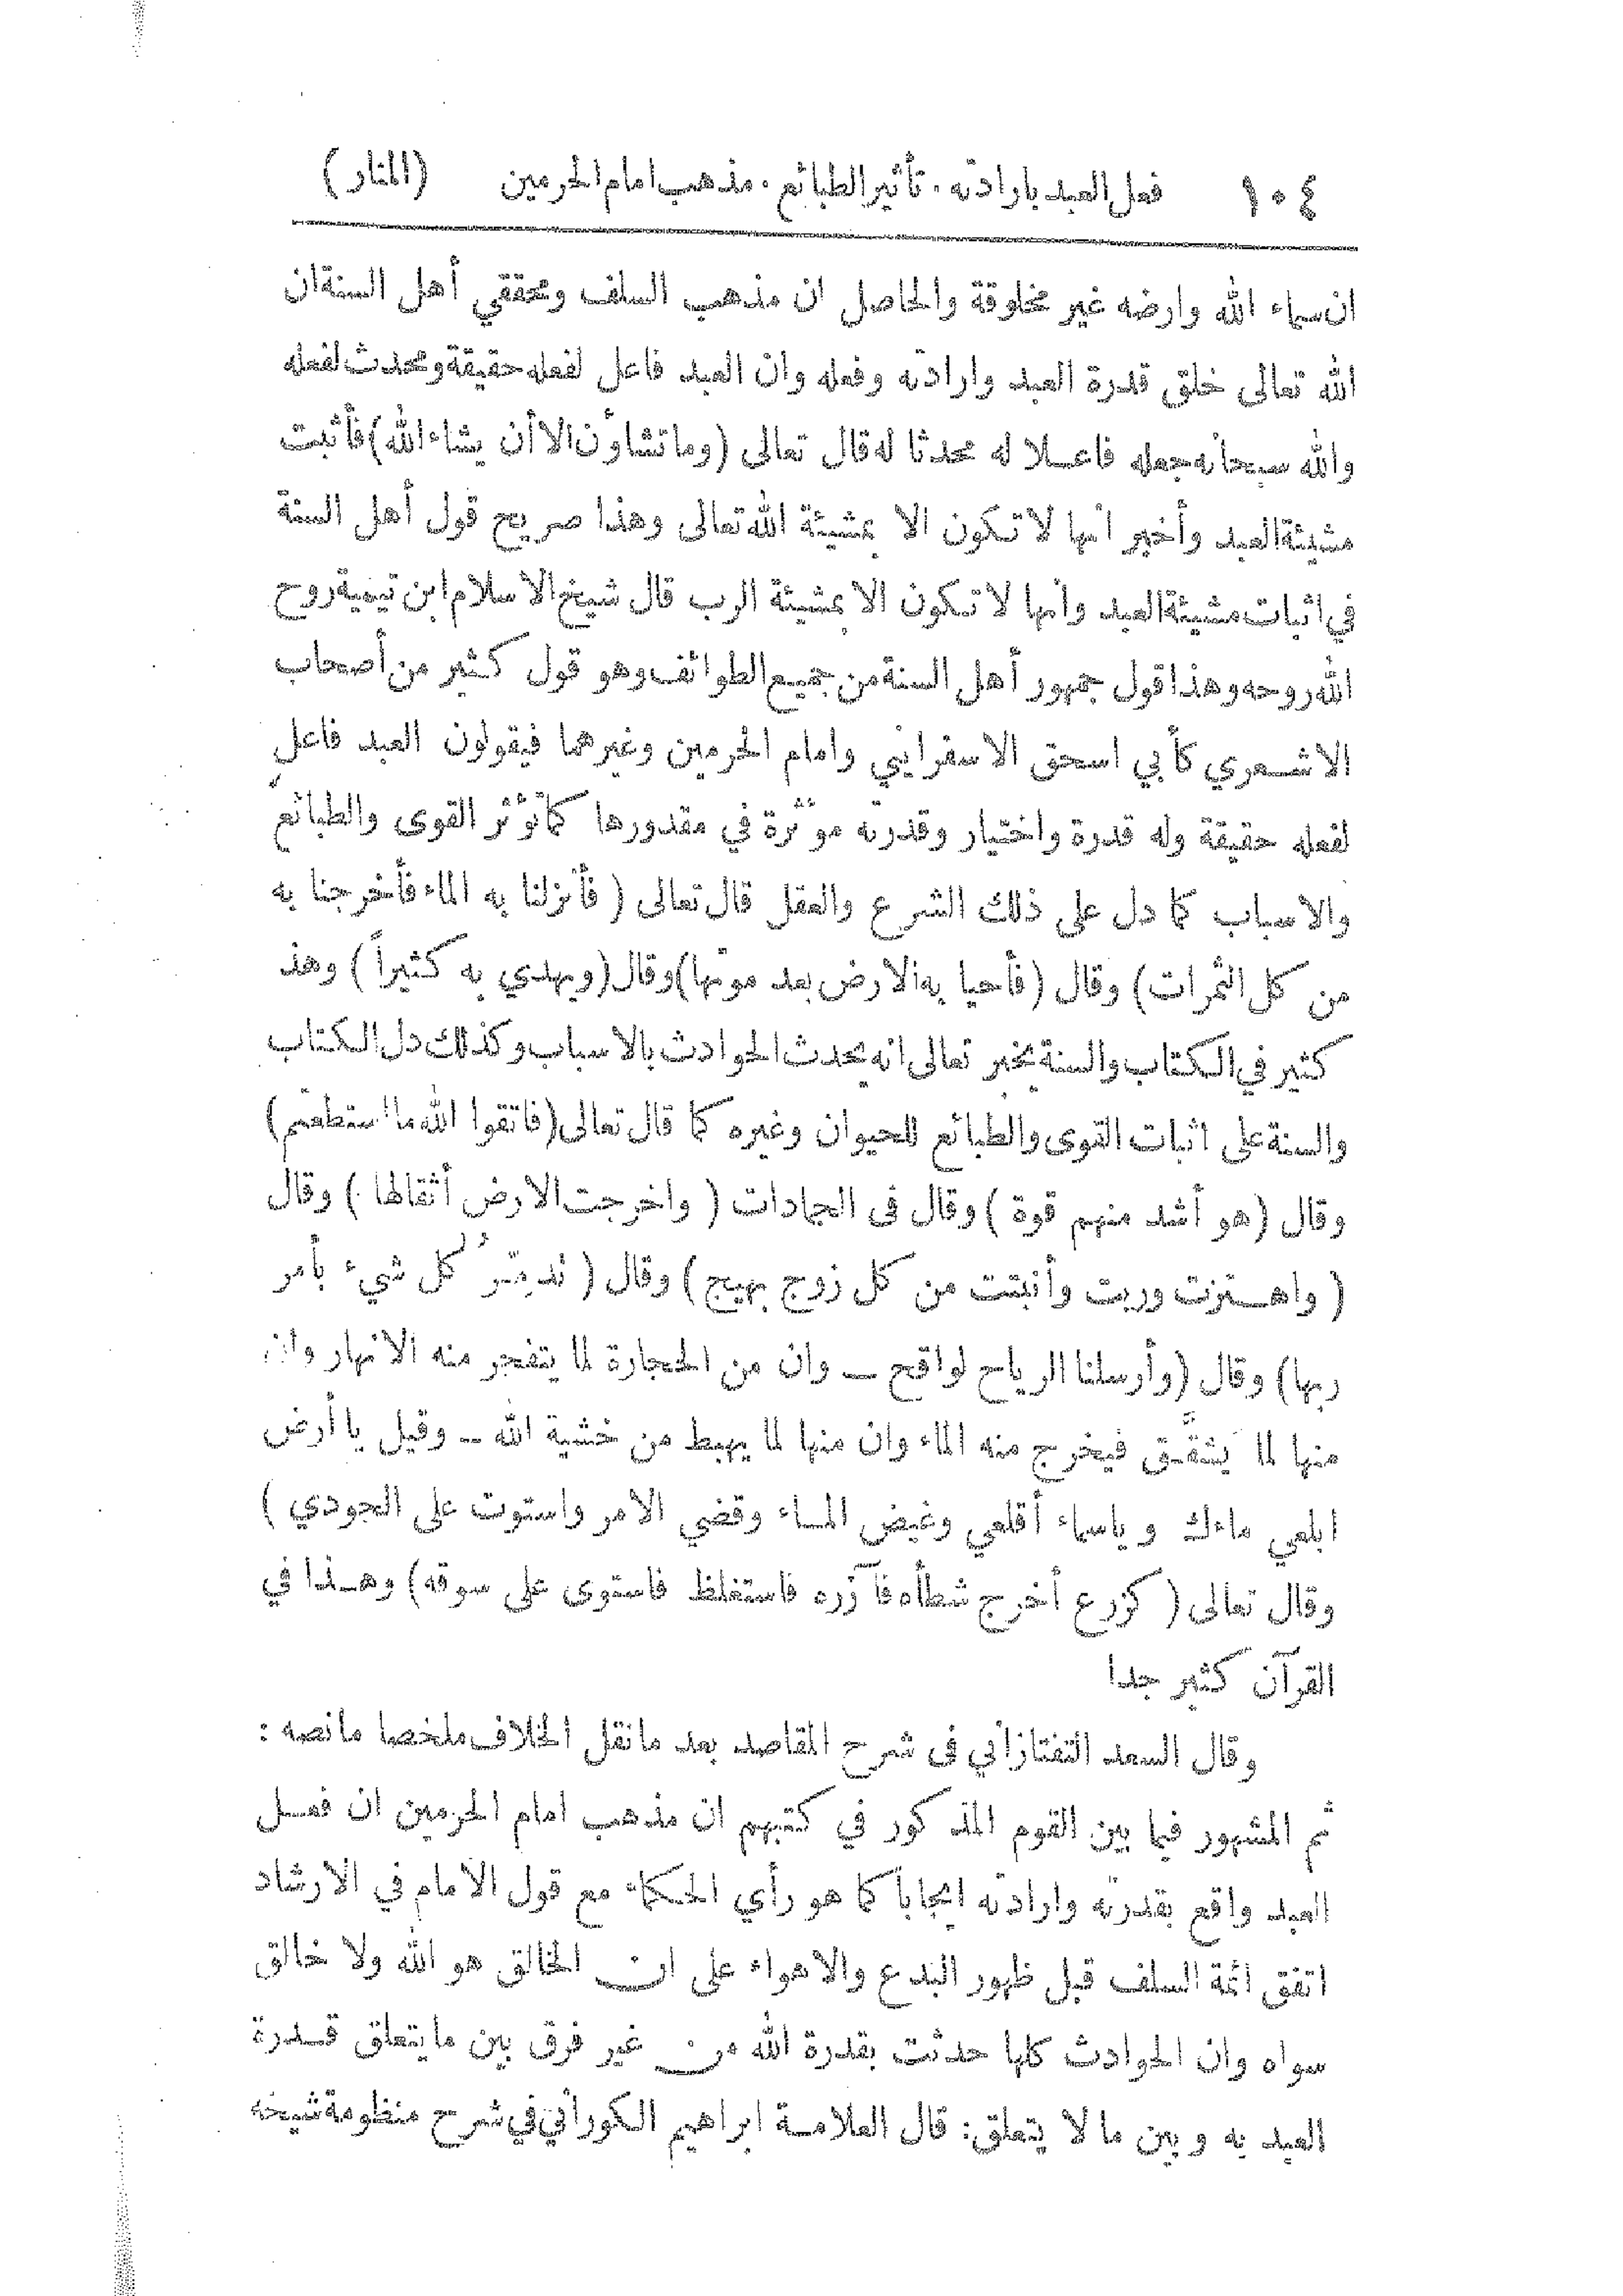 ١٠٤ فعل العبد بارادته . تأثير الطبائع . مذهب امام الحرمين (المنار)
ان سماء الله وارضه غير مخلوقة والحاصل ان مذهب السلف ومحققي أهل السنة ان
الله تعالى خلق قدرة العبد وارادته وفعله وان العبد فاعل لفعله حقيقة ومحدث لفعله
والله سبحانه جعله فاعلا له محدثا له قال تعالى (وما تشاؤن الا أن يشاء الله) فأثبت
مشيئة العبد وأخبر انها لا تكون الا بمشيئة الله تعالى وهذا صريح قول أهل السنة
في اثبات مشيئة العبد وانها لا تكون الا بمشيئة الرب قال شيخ الاسلام ابن تيمية روح
الله روحه وهذا قول جمهور أهل السنة من جميع الطوائف وهو قول كثير من أصحاب
الاشعري كأبي اسحق الاسفرايني وامام الحرمين وغيرهما فيقولون العبد فاعل
لفعله حقيقة وله قدرة واختيار وقدرته مؤثرة في مقدورها كما تؤثر القوى والطبائع
والاسباب كما دل على ذلك الشرع والعقل قال تعالى ( فأنزلنا به الماء فأخرجنا به
من كل الثمرات) وقال (فأحيا به الارض بعد موتها) وقال (ويهدي به كثيراً ) وهذ
كثير في الكتاب والسنة يخبر تعالى انه يحدث الحوادث بالاسباب وكذلك دل الكتاب
والسنة على اثبات القوى والطبائع للحيوان وغيره كما قال تعالى (فاتقوا الله ما استطعتم)
وقال (هو أشد منهم قوة ) وقال فى الجمادات ( واخرجت الارض أثقالها ) وقال
( واهتزت وربت وأنبتت من كل زوج بهيج) وقال ( تدمِّرُ كل شيء بأمر
ربها) وقال (وأرسلنا الرياح لواقح — وان من الحجارة لما يتفجر منه الانهار وان
منها لما يشقَّق فيخرج منه الماء وان منها لما يهبط من خشية الله — وقيل يا أرض
ابلعي ماءك وياسماء أقلعي وغيض الماء وقضي الامر واستوت على الجودي )
وقال تعالى ( كزرع أخرج شطأه فآزره فاستغلظ فاستوى على سوقه) وهذا في
القرآن كثير جدا
وقال السعد التفتازاني فى شرح المقاصد بعد ما نقل الخلاف ملخصا ما نصه :
ثم المشهور فيما بين القوم المذكور في كتبهم ان مذهب امام الحرمين ان فعل
العبد واقع بقدرته وارادته ايجاباً كما هو رأي الحكماء مع قول الامام في الارشاد
اتفق ائمة السلف قبل ظهور البدع والاهواء على ان الخالق هو الله ولا خالق
سواه وان الحوادث كلها حدثت بقدرة الله من غير فرق بين ما يتعلق قدرة
العبد به وبين ما لا يتعلق: قال العلامة ابراهيم الكوراني في شرح منظومة شيخه